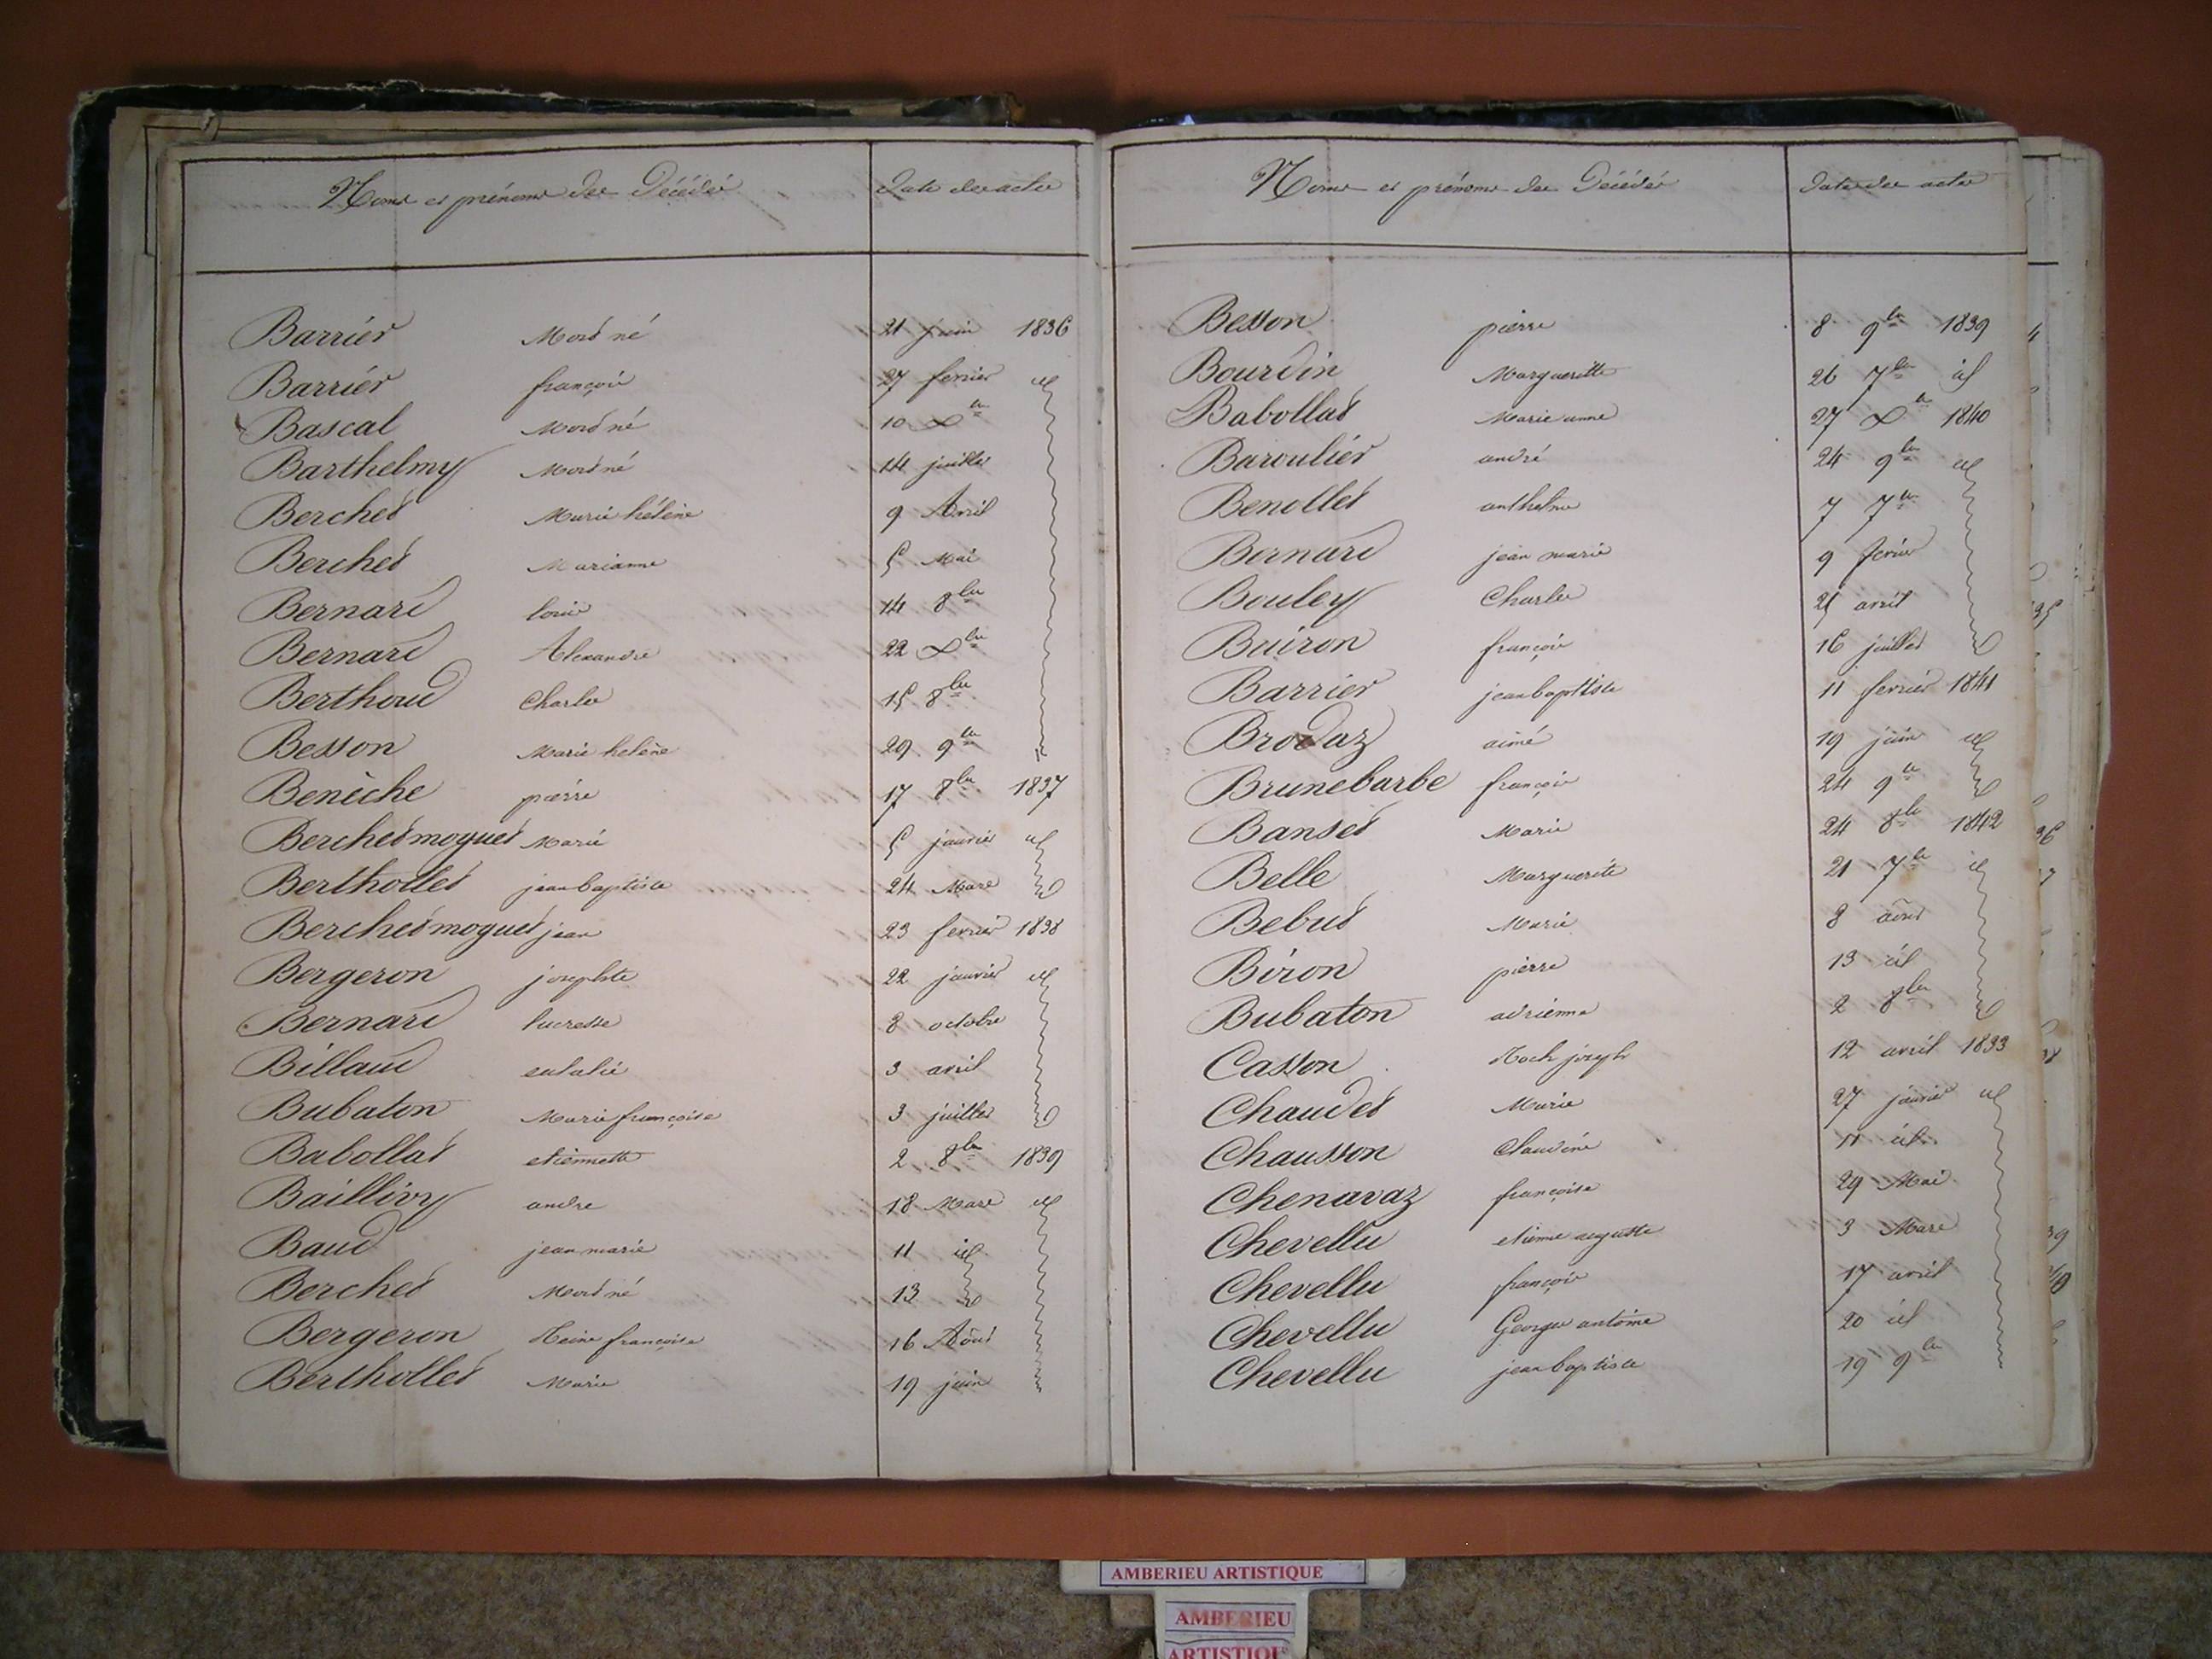 Noms et prénoms des Décédés Date des actes
Barrier Mort né 21 juin 1836
Barrier françois 27 fevrier id
Bascal Mort né 10 Xbre
Barthelmy Mort né 14 juillet
Berchet Marie hélène 9 Avril
Berchet Marianne 5 Mai
Bernard louis 14 8bre
Bernard Alexandre 22 Xbre
Berthoud Charles 15 8bre
Besson Marie helène 29 9bre
Benèche pierre 17 8bre 1837
Berchet moguet Marie 5 janvier id
Berthollet jean baptiste 24 Mars
Berchet moguet jean 23 fevrier 1838
Bergeron josephte 22 janvier id
Bernard lucresse 8 octobre
Billaud eulalie 3 avril
Bubaton Marie françoise 3 juillet
Babollat etiennette 2 8bre 1839
Baillivy andre 18 Mars id
Baud jean marie 11 id
Berchet Mort né 13
Bergeron Reine françoise 16 Août
Berthollet Marie 19 juin
Noms et prénoms des Décédés Date des actes
Besson pierre 8 9bre 1839
Bourdin Margueritte 26 7bre id
Babollat Marie anne 27 Xbre 1840
Baroulier andré 24 9bre id
Benollet anthelme 7 7bre
Bernard jean marie 9 fevrier
Bouley Charles 25 avril
Buiron françois 16 juillet
Barrier jean bapttiste 11 fevrier 1841
Brodaz aimé 19 juin id
Brunebarbe françois 24 9bre
Banset Marie 24 8bre 1842
Belle Marguerite 21 7bre id
Bebut Marie 8 août
Biron pierre 13 id
Bubaton adrienne 2 8bre
Casson Roch joseph 12 avril 1833
Chaudet Marie 27 janvier id
Chausson Claudine 11 id
Chenavaz françoise 29 Mai
Chevellu etienne auguste 3 Mars
Chevellu françois 17 avril
Chevellu George antoine 20 id
Chevellu jean baptiste 19 9bre
AMBERIEU ARTISTIQUE
AMBERIEU
ARTISTIQU